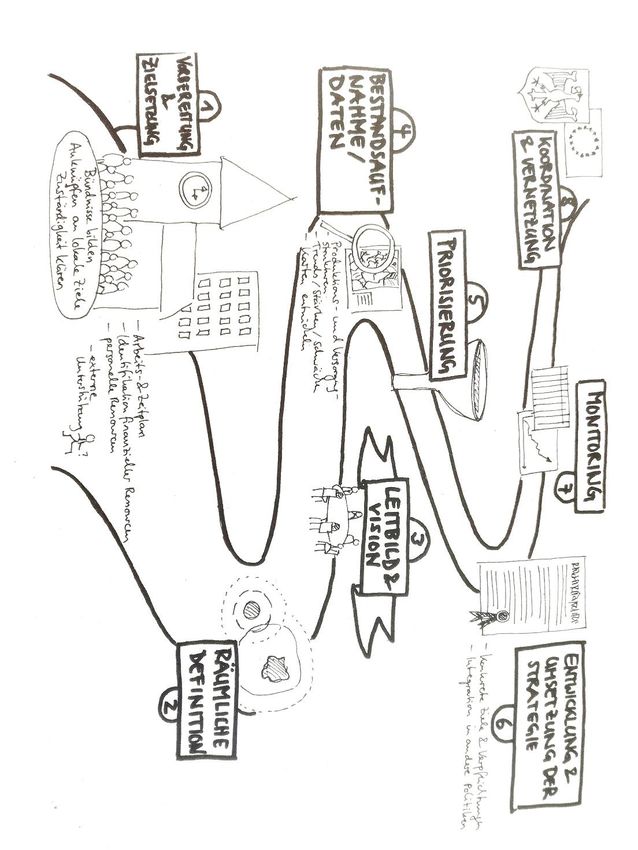 1
VORBEREITUNG
&
ZIELSETZUNG
Bündnisse bilden
Anknüpfen an lokale Ziele
Zuständigkeit klären
- Arbeits- & Zeitplan
- Identifikation finanzieller Resourcen
- personelle Resourcen
- externe
Unterstützung?
2
RÄUMLICHE
DEFINITION
3
LEITBILD &
VISION
4
BESTANDSAUF-
NAHME/
DATEN
- Produktions- und Versorgungs-
strukturen
- Trends/Stärken/Schwächen
5
PRIORISIERUNG
6
ENTWICKLUNG &
UMSETZUNG DER
STRATEGIE
- konkrete Ziele & Verpflichtungen
- Integration in andere Politiken
7
MONITORING
8
KOORDINATION
& VERNETZUNG